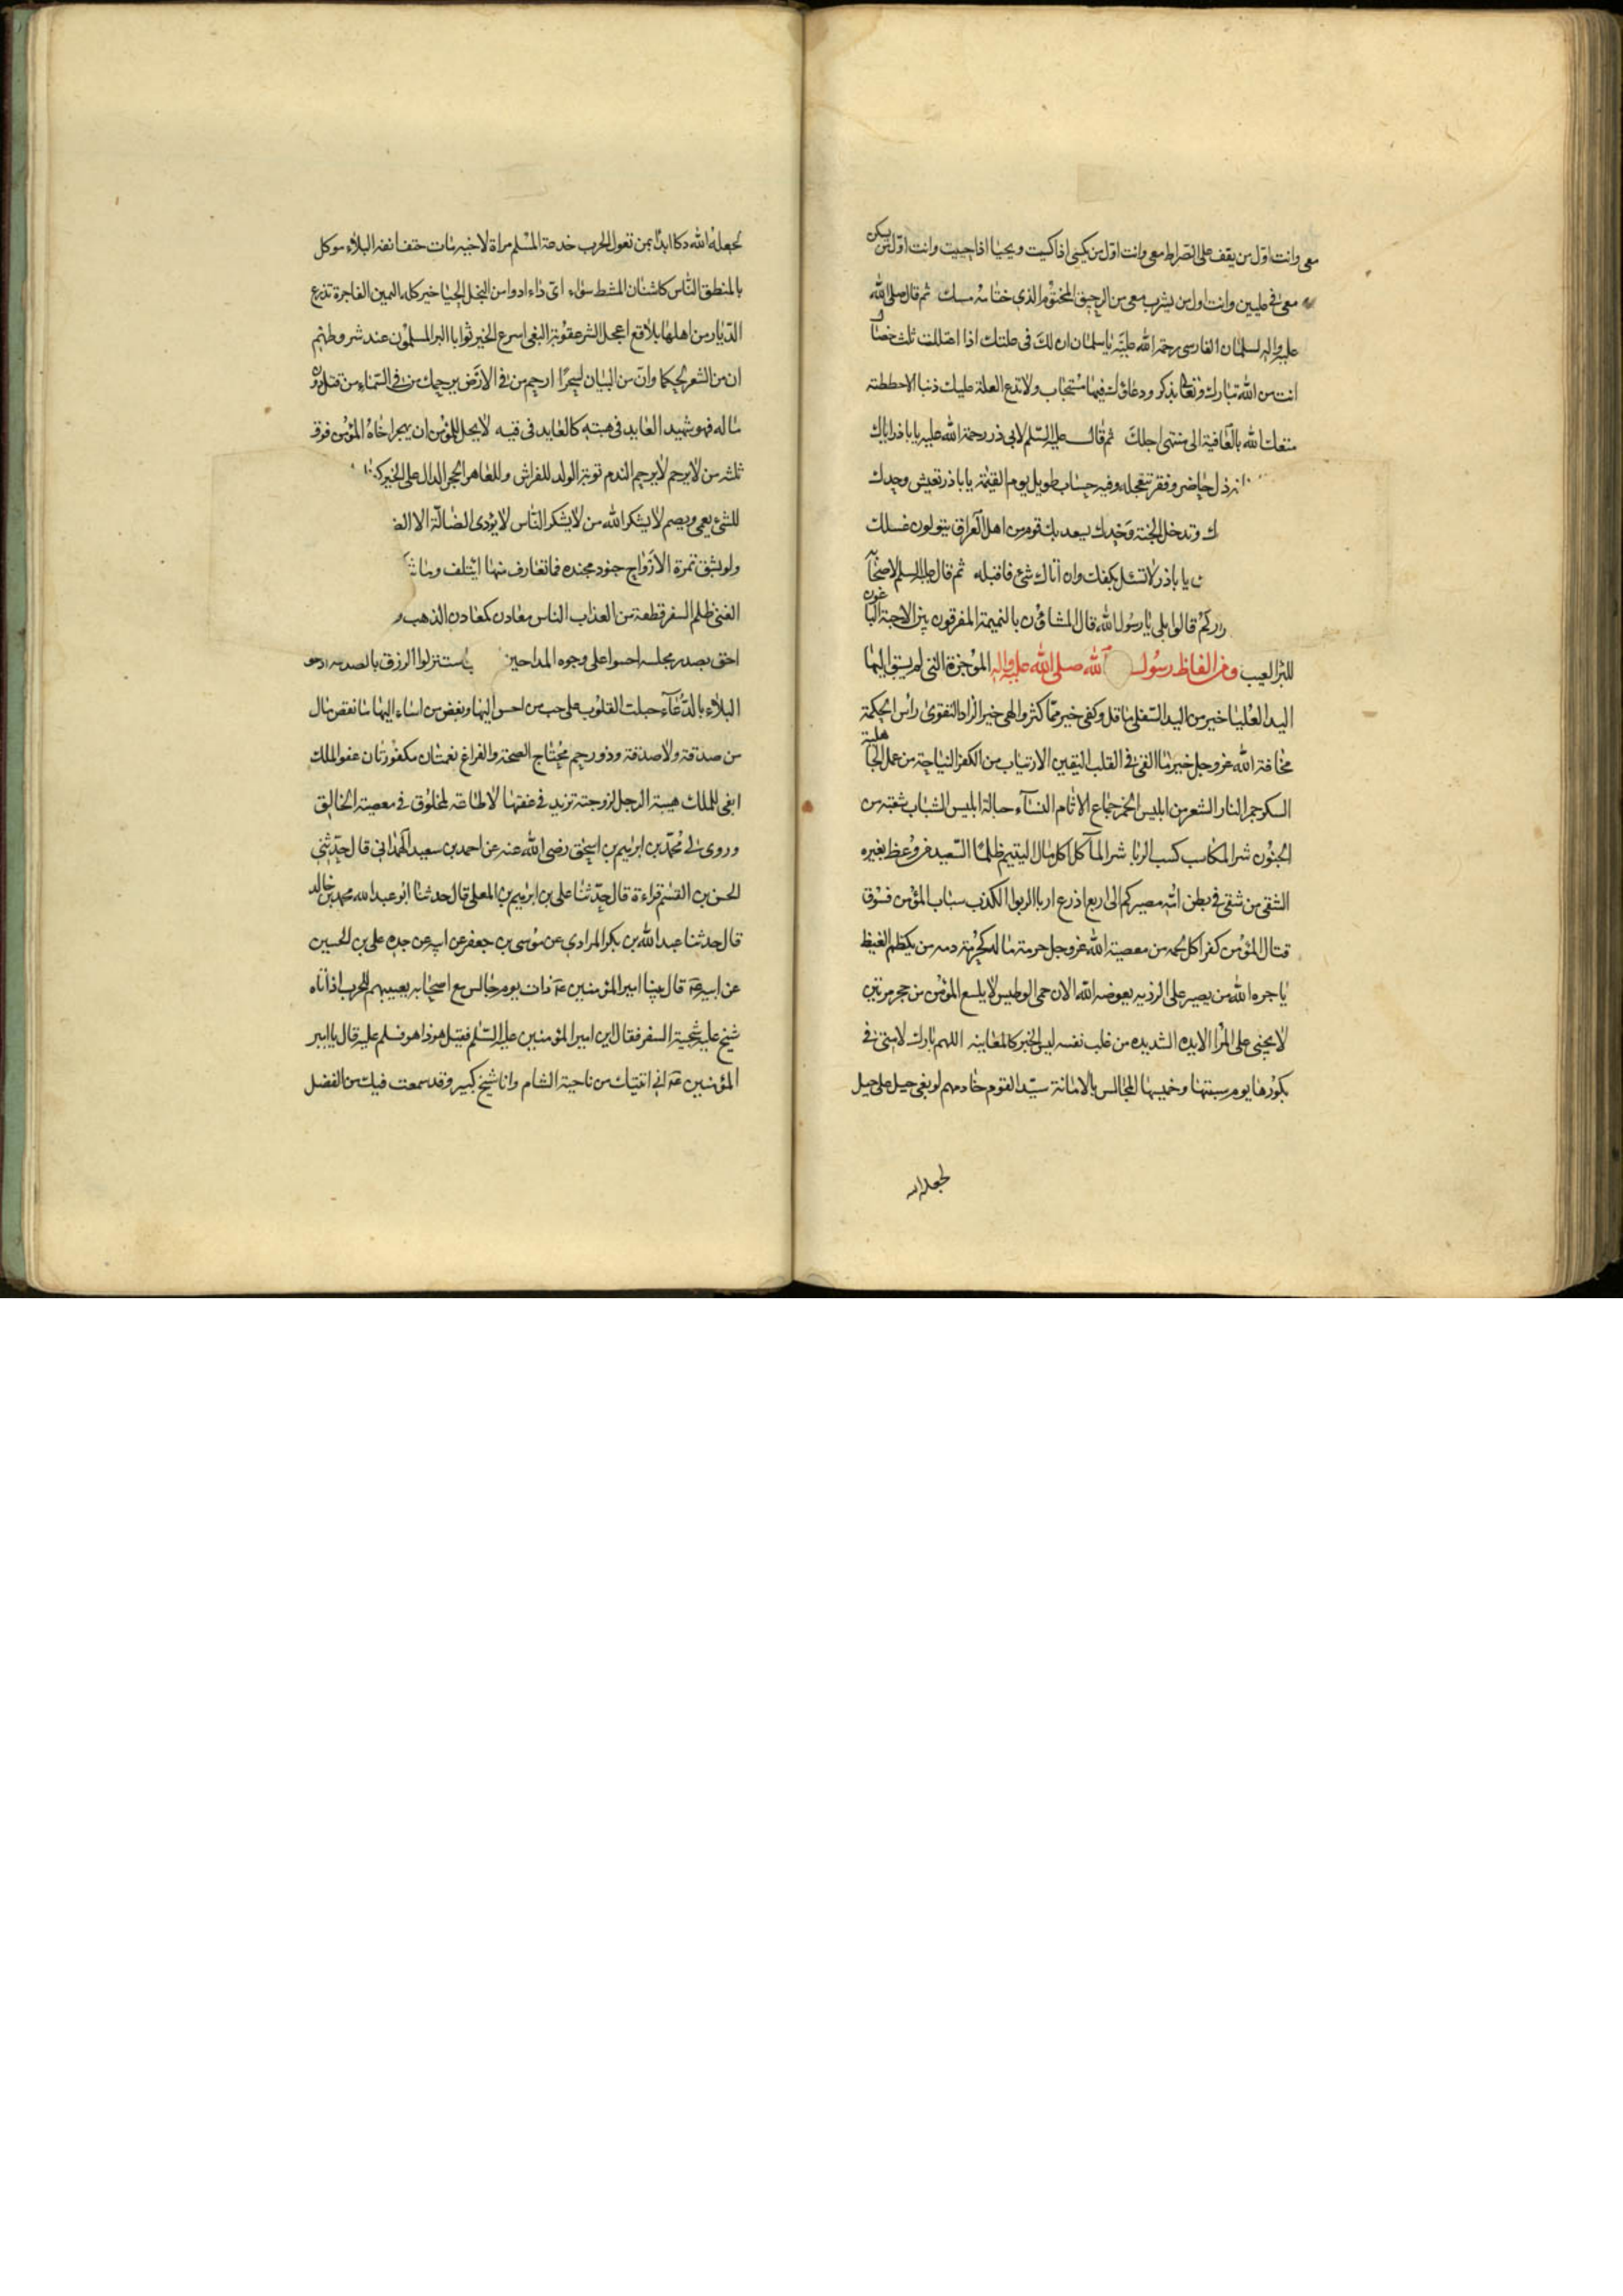 معى وانت اول من يقف على الصراط معى وانت اول من يكسى اذا كسيت ويحيا اذا حييت وانت اول من يسكن
معى فى عليين وانت اول من يشرب معى من الرحيق المختوم الذى ختامه مسك ثم قال صلى الله
عليه واله لسلمان الفارسى رحمة الله عليه يا سلمان ان لك فى علتك اذا اعتللت ثلث خصال
انت من الله تبارك وتعالى بذكر ودعاؤك فيها مستجاب ولا تدع العلة عليك ذنبا الا حطته
متعك الله بالعافية الى منتهى اجلك ثم قال عليه السلم لابى ذر رحمة الله عليه يا باذر اياك
ذل حاضر وفقر تتعجله وفيه حساب طويل يوم القيمة يا باذر تعيش وحدك
وتدخل الجنة وحدك يسعد بك قوم من اهل العراق يتولون غسلك
يا باذر لا تسئل بكفك وان اتاك شئ فاقبله ثم قال عليه السلم لاصحابه
قالوا بلى يا رسول الله قال المشاؤن بالنميمة المفرقون بين الاحبة الباغون
للبرآ العيب ومن الفاظ رسول الله صلى الله عليه واله الموجزة التى لم يسبق اليها
اليد العليا خير من اليد السفلى ما قل وكفى خير مما كثر والهى خير الزاد التقوى راس الحكمة
مخافة الله عز وجل خير ما القى فى القلب اليقين الارتياب من الكفر النياحة من عمل الجاهلية
السكر جمر النار الشعر من ابليس الخمر جماع الاثام النسآء حبالة ابليس الشباب شعبة من
الجنون شر المكاسب كسب الربا شر المآكل اكل مال اليتيم ظلما السعيد من وعظ بغيره
الشقى من شقى فى بطن امه مصيركم الى اربع اذرع اربا الربوا الكذب سباب المؤمن فسوق
قتال المؤمن كفر اكل لحمه من معصية الله عز وجل حرمة ماله كحرمة دمه من يكظم الغيظ
ياجره الله من يصبر على الرزية يعوضه الله الان حمى الوطيس لا يلسع المؤمن من جحر مرتين
لا يجنى على المرأ الا يده الشديد من غلب نفسه ليس الخبر كالمعاينة اللهم بارك لامتى فى
بكورها يوم سبتها وخميسها المجالس بالامانة سيد القوم خادمهم لو بغى جبل على جبل
لجعله الله
لجعله الله دكا ابدأ بمن تعول الحرب خدعة المسلم مراة لاخيه مات حتف انفه البلاء موكل
بالمنطق الناس كاسنان المشط سواء اى داء ادوا من البخل الحيا خير كله اليمين الفاجرة تذرع
الديار من اهلها بلاقع اعجل الشر عقوبة البغى اسرع الخير ثوابا البر المسلمون عند شروطهم
ان من الشعر لحكما وان من البيان لسحرا ارحم من فى الارض يرحمك من فى السماء من قتل دون
ماله فهو شهيد العايد فى هبته كالعايد فى قيه لا يحل للمؤمن ان يهجر اخاه المؤمن فوق
ثلثة من لا يرحم لا يرحم الندم توبة الولد للفراش وللعاهر الحجر الدال على الخير
للشئ يعمى ويصم لا يشكر الله من لا يشكر الناس لا يؤدى الضالة الا
ولو بشق تمرة الارواح جنود مجندة فما تعارف منها ايتلف وما
الغنى ظلم السفر قطعة من العذاب الناس معادن كمعادن الذهب و
احق بصدر مجلسه احسوا على وجوه المداحين استنزلوا الرزق بالصدقة
البلاء بالدعاء جبلت القلوب على حب من احسن اليها وبغض من اساء اليها ما نقص مال
من صدقة ولا صدقة وذو رحم محتاج الصحة والفراغ نعمتان مكفورتان عفو الملك
ابقى للملك هيبة الرجل لزوجته تزيد فى عفتها لا طاعة لمخلوق فى معصية الخالق
وروى لى محمد بن ابراهيم بن اسحق رضى الله عنه عن احمد بن سعيد الهمدانى قال حدثنى
الحسن بن القسم قراءة قال حدثنا على بن ابرهيم بن المعلى قال حدثنا ابو عبد الله محمد بن خالد
قال حدثنا عبد الله بن بكر المرادى عن موسى بن جعفر عن ابيه عن جده على بن الحسين
عن ابيه ع قال بينا امير المؤمنين ع ذات يوم جالس مع اصحابه يعبيهم للحرب اذ اتاه
شيخ عليه شحبة السفر فقال اين امير المؤمنين عليه السلم فقيل هو ذا هو فسلم عليه قال يا امير
المؤمنين ع انى اتيتك من ناحية الشام وانا شيخ كبير وقد سمعت فيك من الفضل